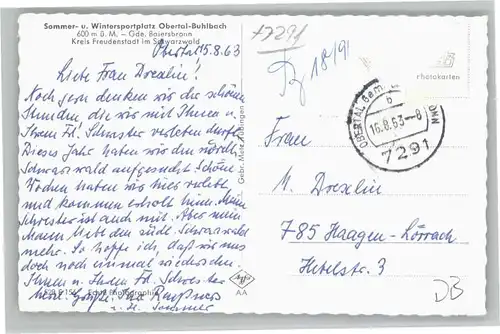 Sommer- u. Wintersportplatz Obertal-Buhlbach
600 m ü. M. – Gde. Baiersbronn
Kreis Freudenstadt im Schwarzwald
Obertal 15.8.63
Liebe Frau Drexlin!
Noch gern denken wir der schönen
Stunden die wir mit Ihnen u.
Ihrem Frl. Schwester verleben durften
Dieses Jahr haben wir den nördl.
Schwarzwald aufgesucht. Schöne
Wochen haben wir hier verlebt
und kommen erholt heim. Meine
Schwester ist auch mit. Aber mein
Mann liebt den südl. Schwarzwald
mehr. So hoffe ich, daß wir uns
doch noch einmal wiedersehen.
Ihnen u. Ihrem Frl. Schwester
herzl. Grüße, Ihre
u.
Gebr. Metz, Tübingen
Agfa
AA
7291
18/9
photokarten
OBERTAL
b
16.8.63–8
7291
Frau
M. Drexlin
785 Haagen-Lörrach
Hebelstr. 3
DB